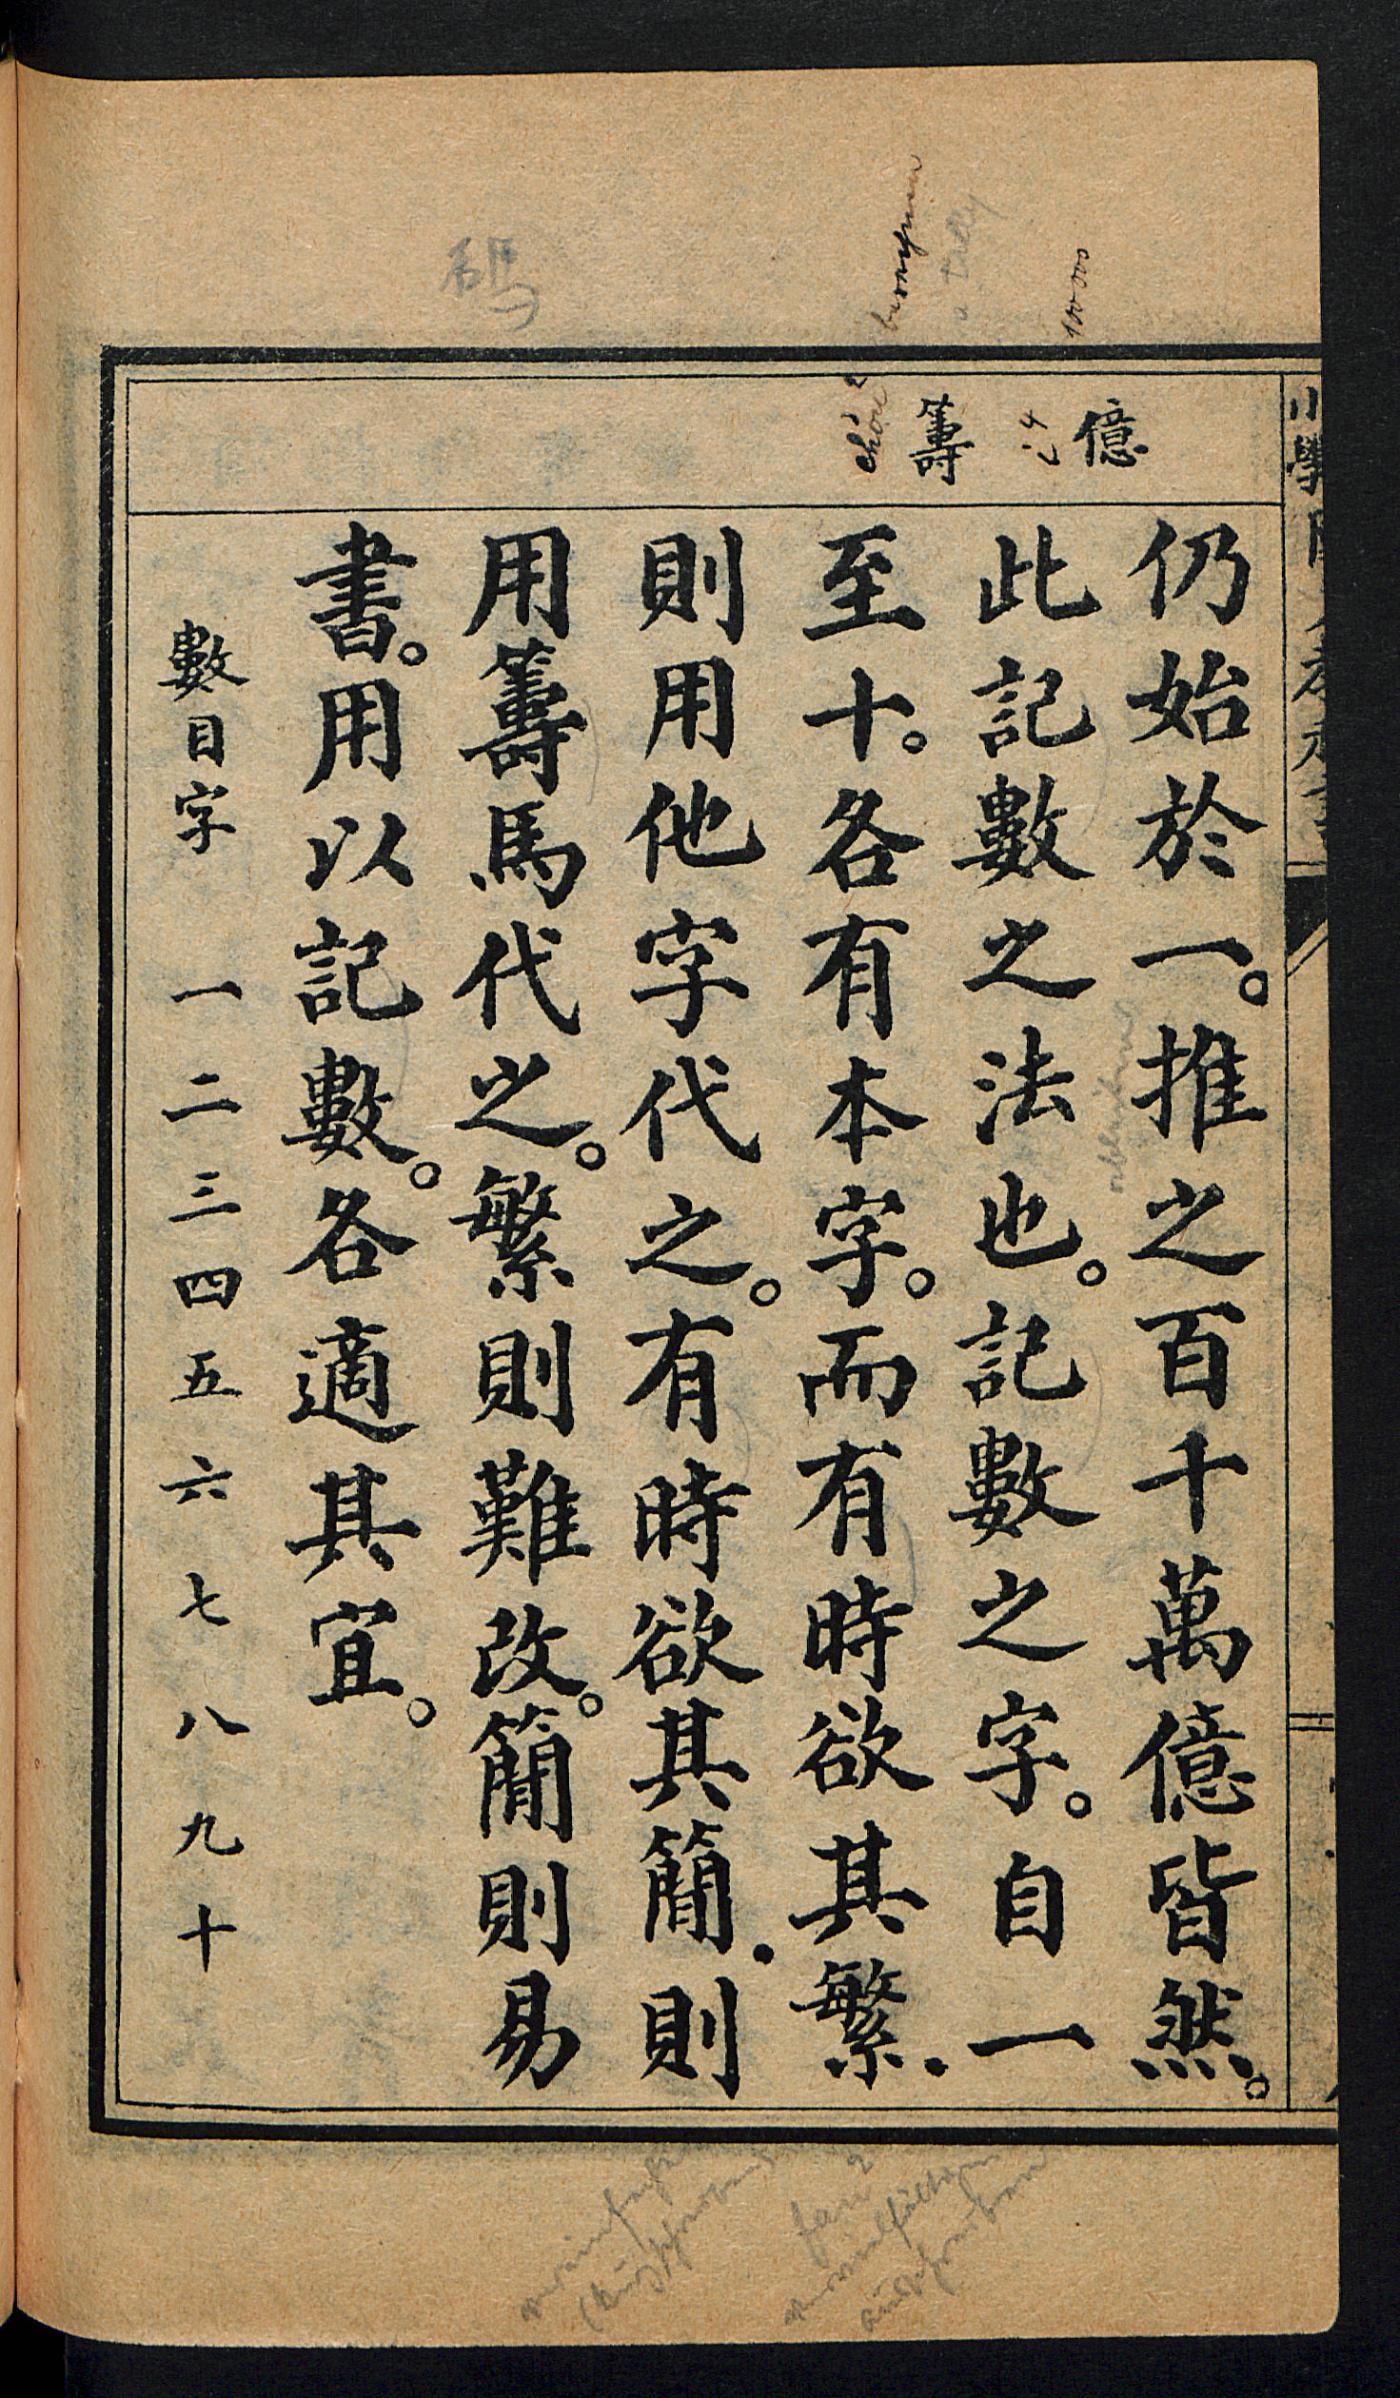 億
籌
仍始於一。推之百千萬億皆然。
此記數之法也。記數之字。自一
至十。各有本字。而有時欲其繁.
則用他字代之。有時欲其簡.則
用籌馬代之。繁則難改。簡則易
書。用以記數。各適其宜。
數目字 一二三四五六七八九十
碼
a tally
100 000
i4
chou2
fan2